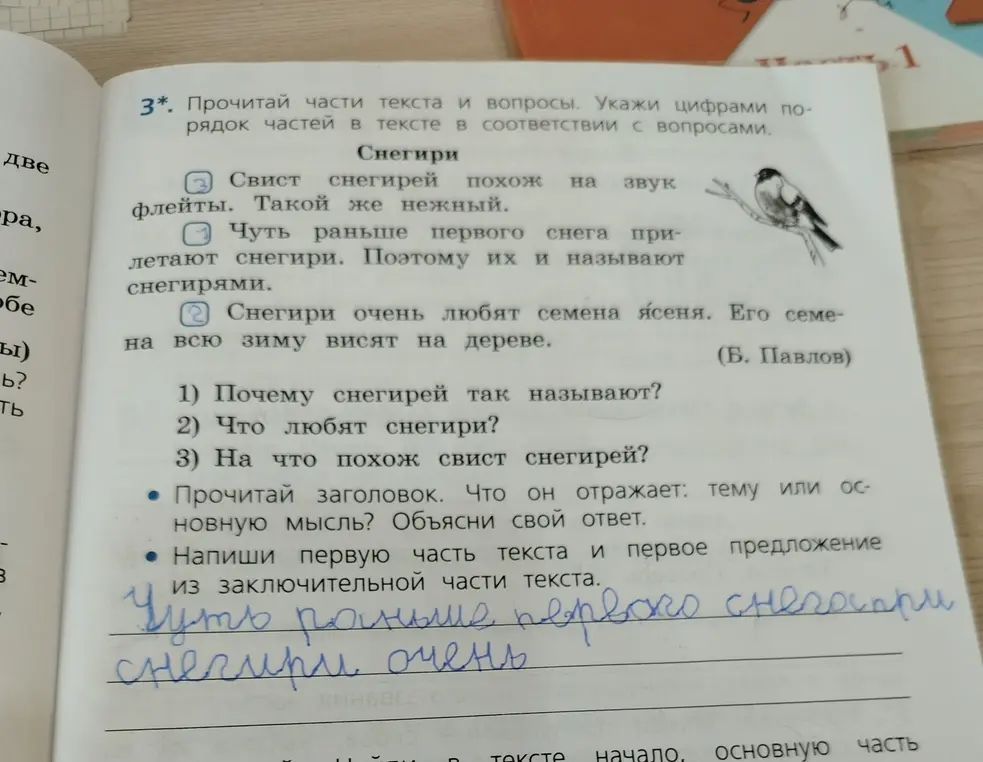 Часть 1
две
ора,
ем-
обе
ы)
ь?
ть
-
в
3*. Прочитай части текста и вопросы. Укажи цифрами по-
рядок частей в тексте в соответствии с вопросами.
Снегири
3 Свист снегирей похож на звук
флейты. Такой же нежный.
1 Чуть раньше первого снега при-
летают снегири. Поэтому их и называют
снегирями.
2 Снегири очень любят семена я́сеня. Его семе-
на всю зиму висят на дереве.
(Б. Павлов)
1) Почему снегирей так называют?
2) Что любят снегири?
3) На что похож свист снегирей?
• Прочитай заголовок. Что он отражает: тему или ос-
новную мысль? Объясни свой ответ.
• Напиши первую часть текста и первое предложение
из заключительной части текста.
Чуть раньше первого снега при
снегири очень
в тексте начало, основную часть